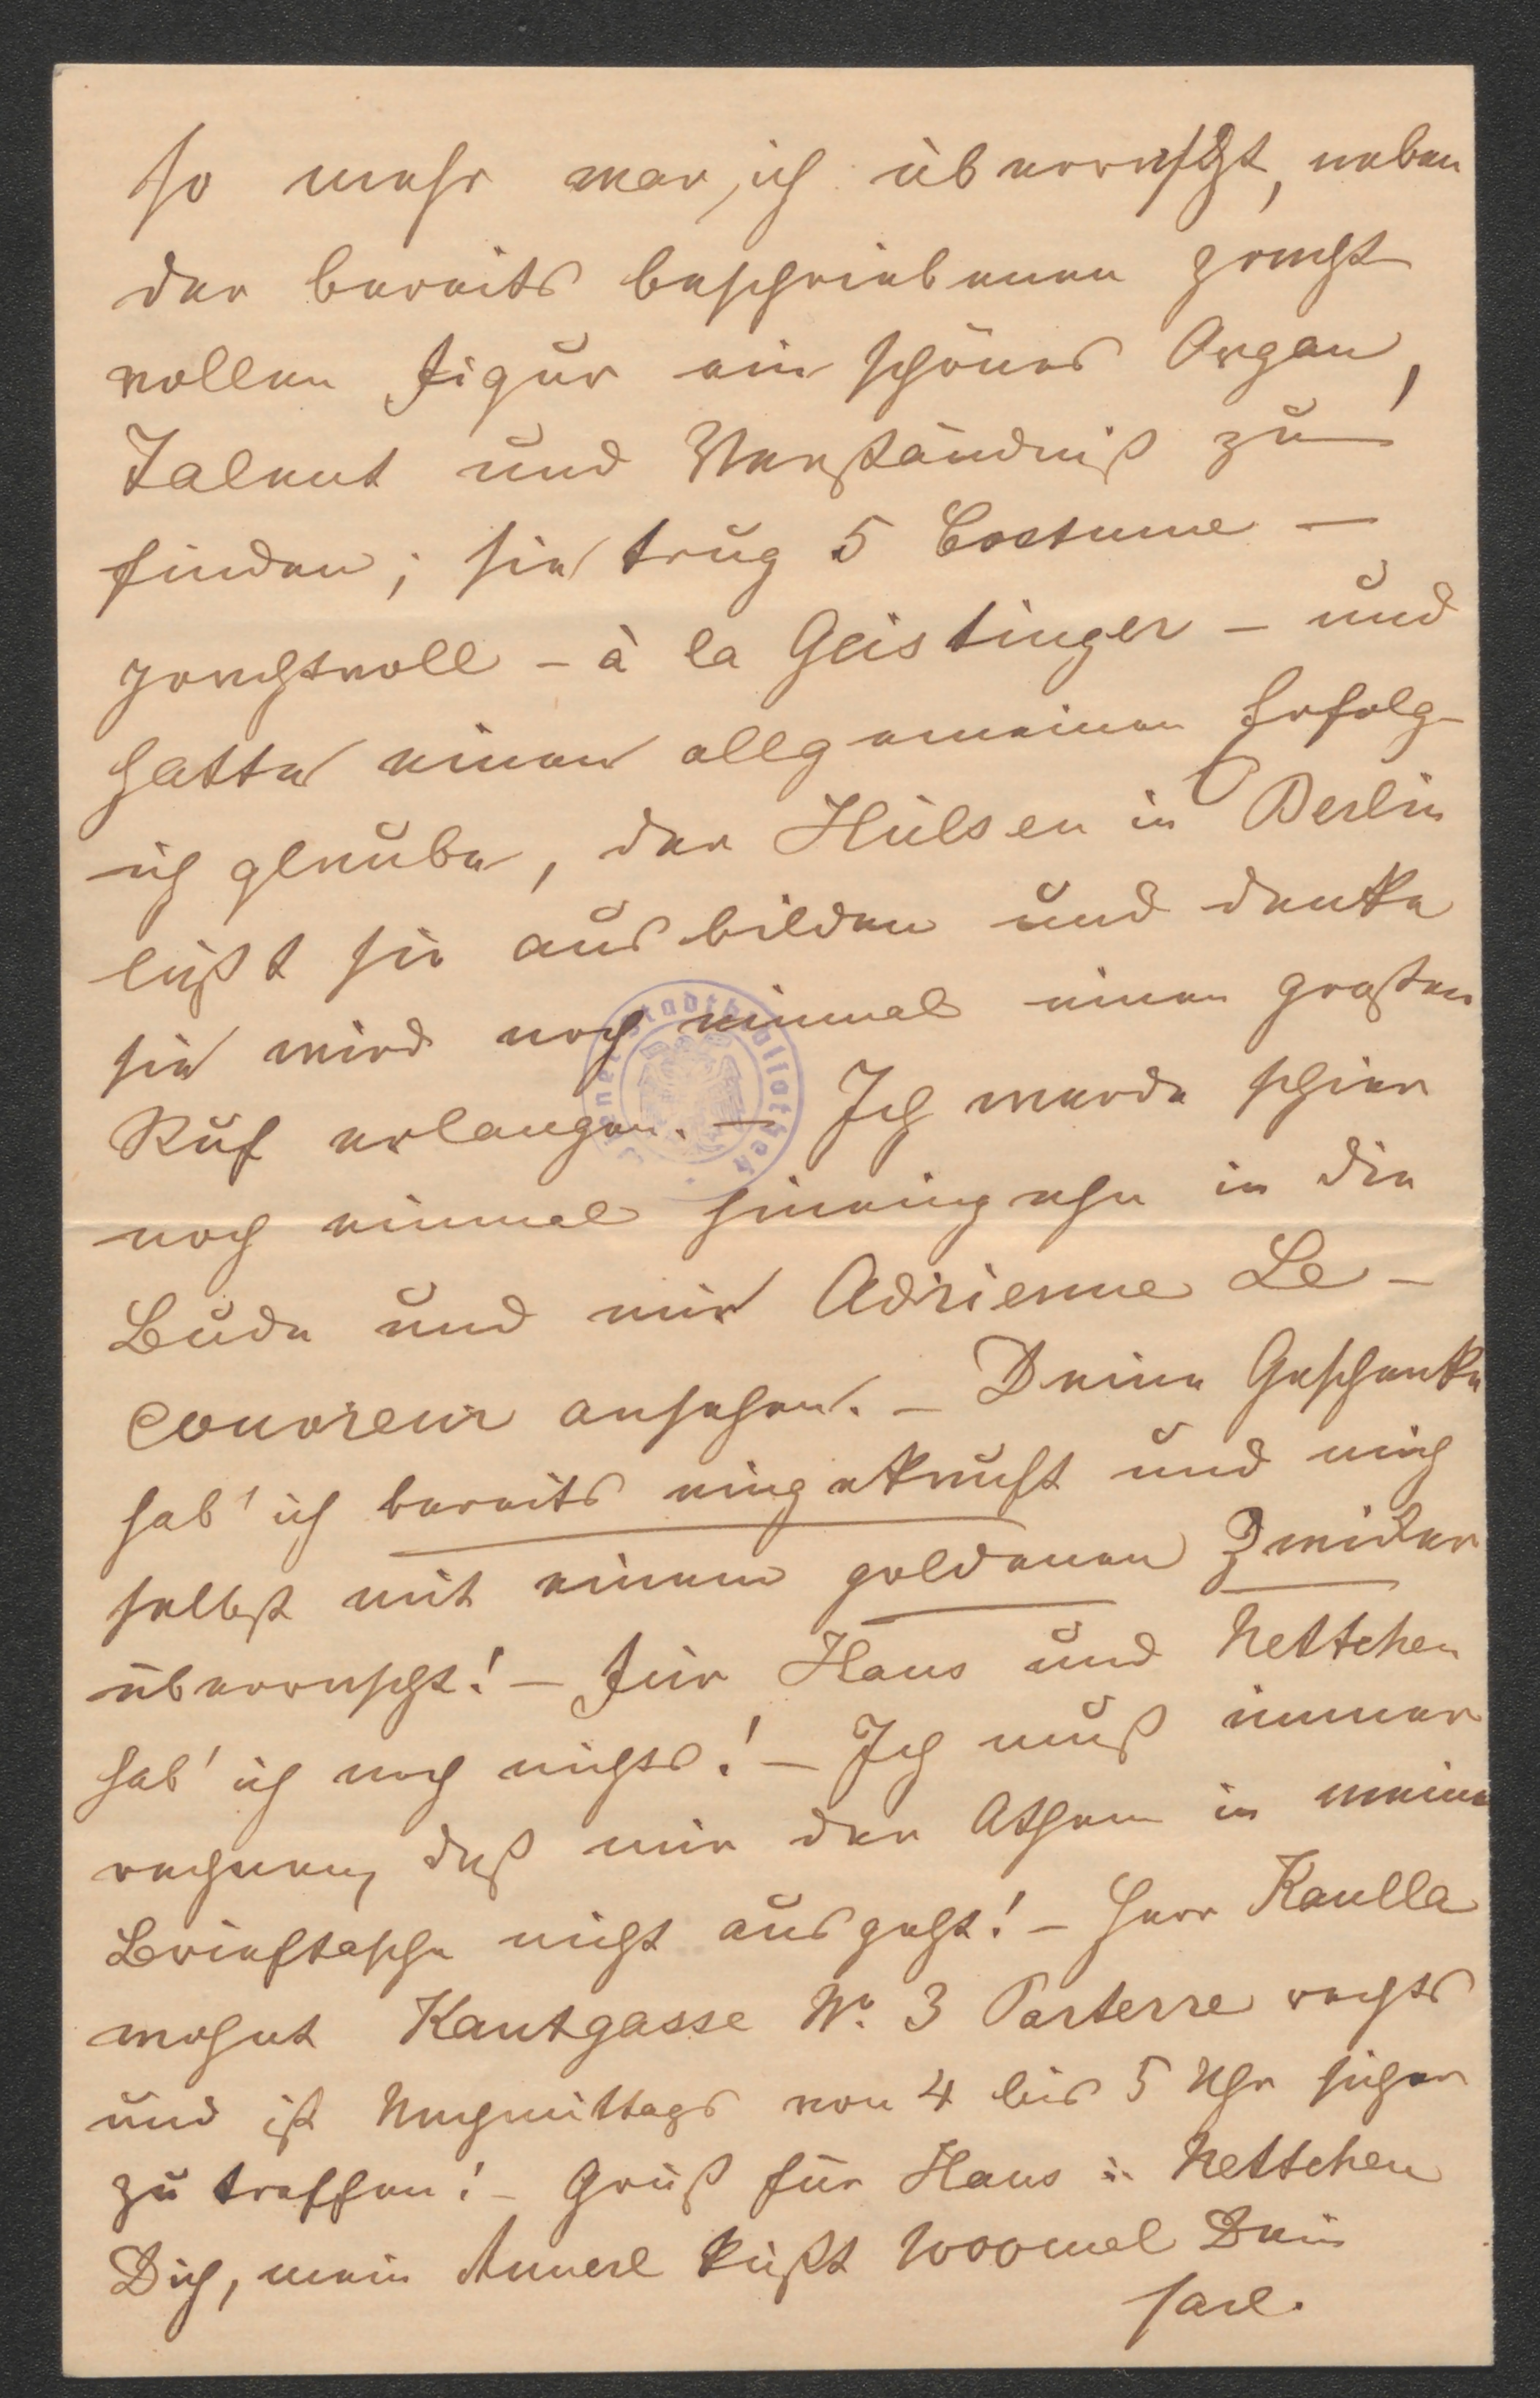 so mehr war ich überrascht, neben
der bereits beschriebenen pracht
vollen Figur ein schönes Organ,
Talent und Verständniß zu
finden; sie trug 5 Costume —
prachtvoll – à la Geistinger – und
hatte einen allgemeinen Erfolg
ich glaube, der Hülsen in Berlin
läßt sie ausbilden und denke
sie wird noch einmal einen großen
Ruf erlangen. — Ich werde schier
noch einmal hineingehn in die
Bude und mir Adrienne Le –
couvreur ansehen. – Deine Geschenke
hab' ich bereits eingekauft und mich
selbst mit einem goldenen Zwicker
überrascht! – Für Hans und Nettchen
hab' ich noch nichts! – Ich muß immer
rechnen, daß mir der Athem in meine
Brieftasche nicht ausgeht! – Herr Kaulla
wohnt Kantgasse No. 3 Parterre rechts
und ist Nachmittags von 4 bis 5 Uhr sicher
zu treffen! – Gruß für Hans u. Nettchen
Dich, mein Annerl küßt 1000mal Dein
Carl.
Wiener Stadtbibliothek